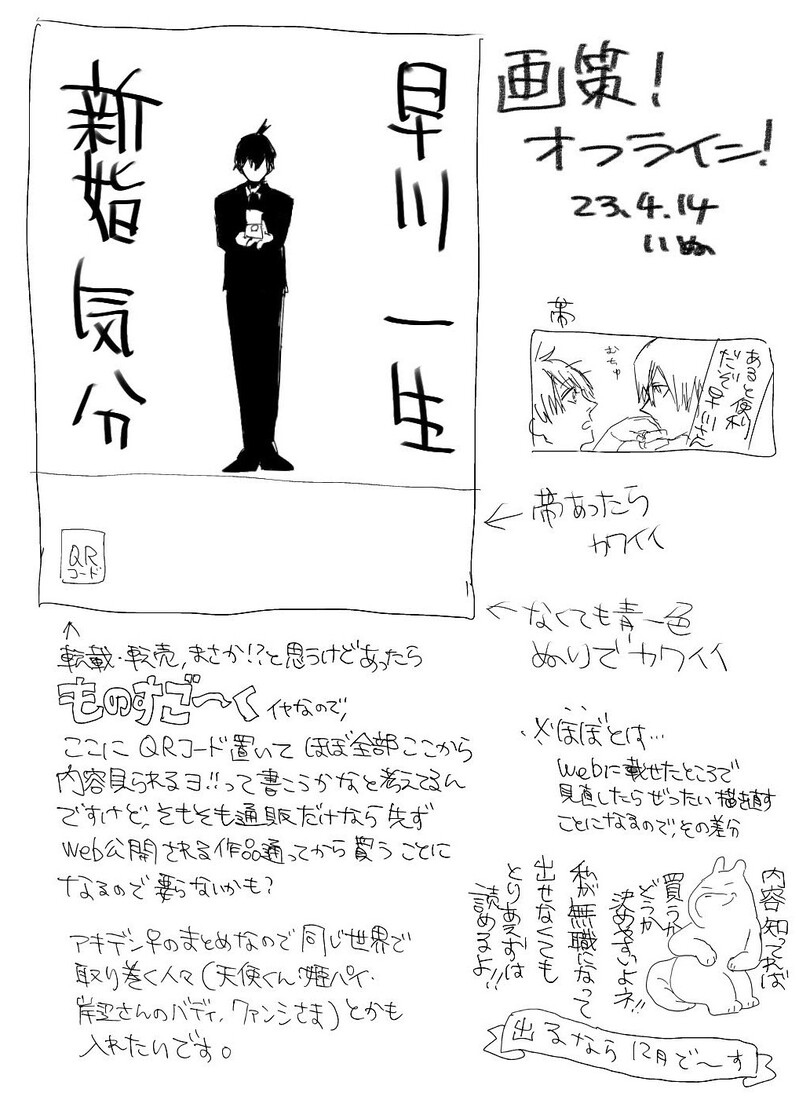 早川一生
新婚気分
画策!
オフライン!
23.4.14
いぬ
帯
あると便利
だぞ早川さん
むちゅ
←帯あったら
カワイイ
←なくても青一色
ぬりでカワイイ
QR
コード
↑
転載・転売、まさか!?と思うけどあったら
ものすご〜く イヤなので、
ここに QRコード置いて ほぼ全部ここから
内容見られるヨ!!って書こうかなと考えてるん
ですけど、そもそも通販だけなら先ず
web公開される作品通ってから買うことに
なるので要らないかも?
※ほぼとは…
webに載せたところで
見直したらぜったい描き直す
ことになるので、その差分
アキデン♀のまとめなので同じ世界で
取り巻く人々(天使くん・姫パイ・
岸辺さんのバディ、クァンシさま)とかも
入れたいです。
内容知ってれば
買うか
どうか
決めやすいよネ!!
私が無職になって
出せなくても
とりあえずは
読めるよ!!
出るなら12月で〜す